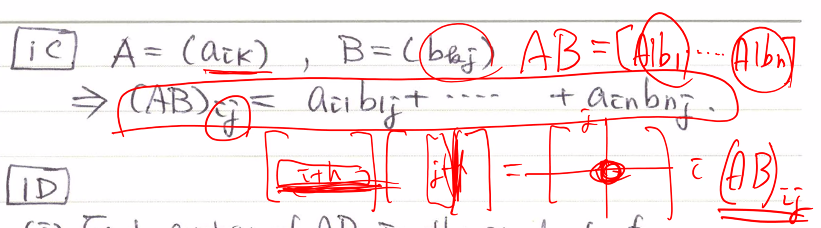 1C A = (aik) , B = (bkj) AB = [Ab1 .... Abn]
⇒ (AB)ij = ai1b1j + .... + ainbnj.
[ith] [jth] = [ ] i (AB)ij
j
1D